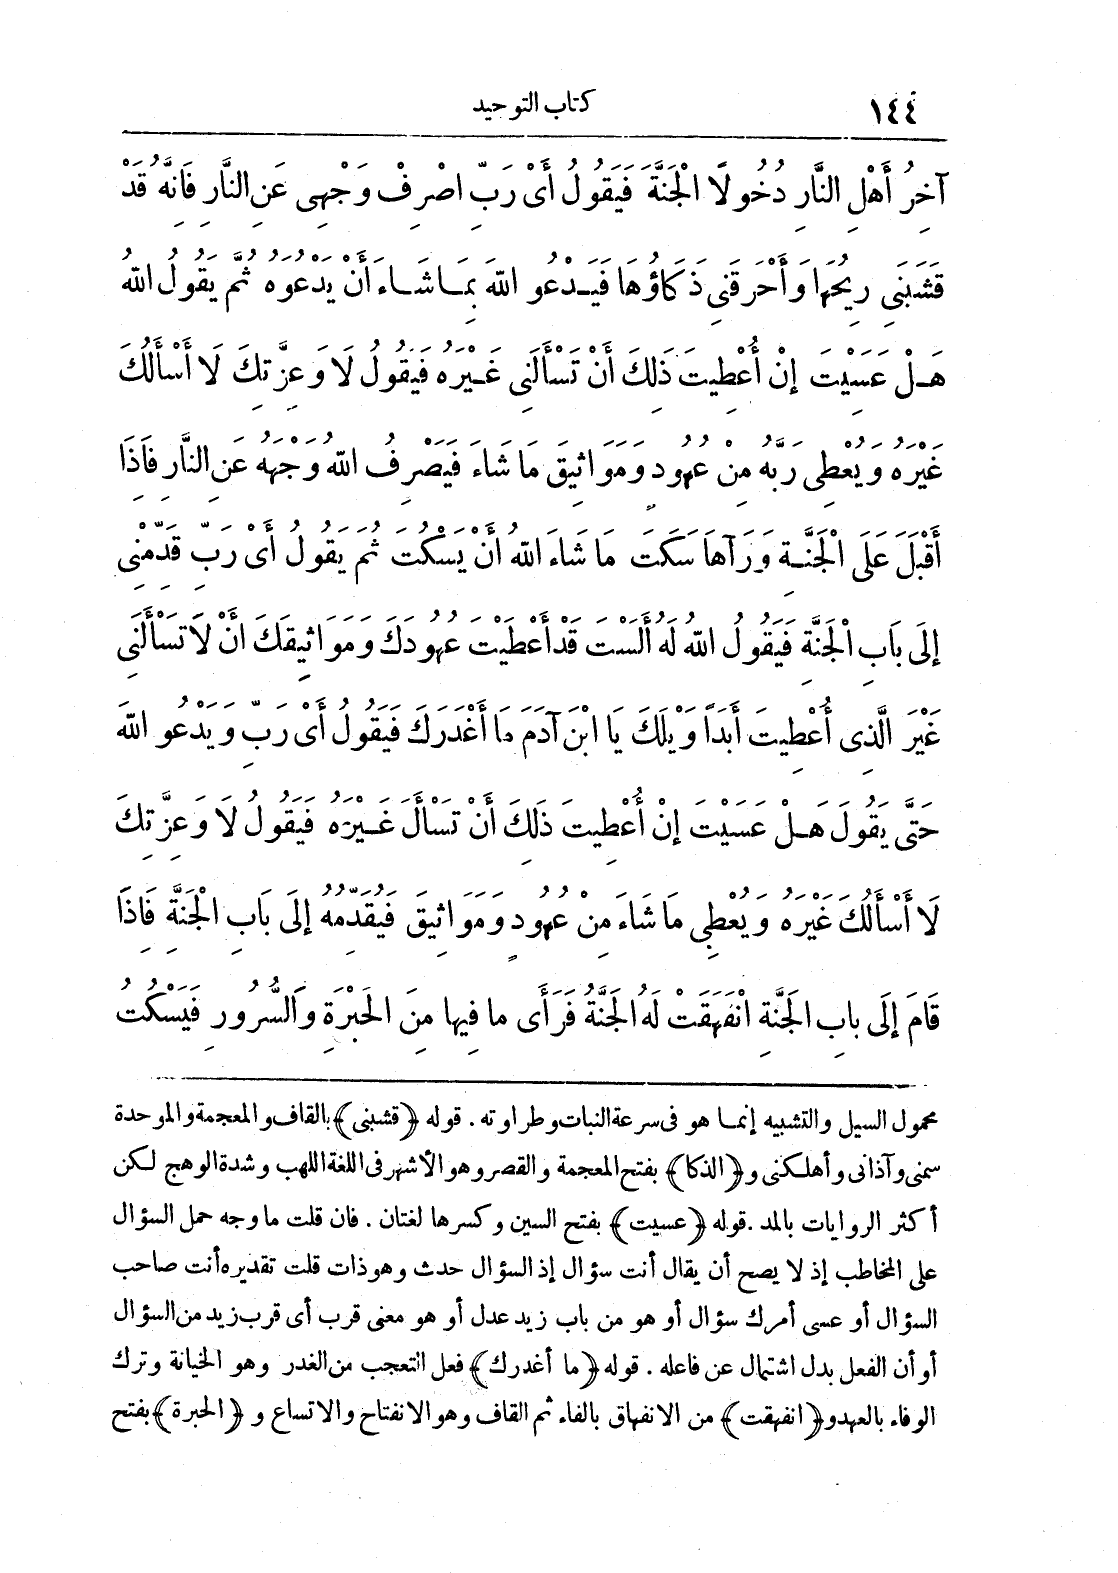 ١٤٤ كتاب التوحيد
آخِرُ أَهْلِ النَّارِ دُخُولًا الْجَنَّةَ فَيَقُولُ أَىْ رَبِّ اصْرِفْ وَجْهِى عَنِ النَّارِ فَانَّهُ قَدْ
قَشَبَنِى رِيحُهَا وَأَحْرَقَنِى ذَكَاؤُهَا فَيَدْعُو اللّٰهَ بِمَا شَاءَ أَنْ يَدْعُوَهُ ثُمَّ يَقُولُ اللّٰهُ
هَلْ عَسَيْتَ إِنْ أُعْطِيتَ ذَلِكَ أَنْ تَسْأَلَنِى غَيْرَهُ فَيَقُولُ لَا وَعِزَّتِكَ لَا أَسْأَلُكَ
غَيْرَهُ وَيُعْطِى رَبَّهُ مِنْ عُهُودٍ وَمَوَاثِيقَ مَا شَاءَ فَيَصْرِفُ اللّٰهُ وَجْهَهُ عَنِ النَّارِ فَاذَا
أَقْبَلَ عَلَى الْجَنَّةِ وَرَآهَا سَكَتَ مَا شَاءَ اللّٰهُ أَنْ يَسْكُتَ ثُمَّ يَقُولُ أَىْ رَبِّ قَدِّمْنِى
إِلَى بَابِ الْجَنَّةِ فَيَقُولُ اللّٰهُ لَهُ أَلَسْتَ قَدْ أَعْطَيْتَ عُهُودَكَ وَمَوَاثِيقَكَ أَنْ لَا تَسْأَلَنِى
غَيْرَ الَّذِى أُعْطِيتَ أَبَدًا وَيْلَكَ يَا ابْنَ آدَمَ مَا أَغْدَرَكَ فَيَقُولُ أَىْ رَبِّ وَيَدْعُو اللّٰهَ
حَتَّى يَقُولَ هَلْ عَسَيْتَ إِنْ أُعْطِيتَ ذَلِكَ أَنْ تَسْأَلَ غَيْرَهُ فَيَقُولُ لَا وَعِزَّتِكَ
لَا أَسْأَلُكَ غَيْرَهُ وَيُعْطِى مَا شَاءَ مِنْ عُهُودٍ وَمَوَاثِيقَ فَيُقَدِّمُهُ إِلَى بَابِ الْجَنَّةِ فَاذَا
قَامَ إِلَى بَابِ الْجَنَّةِ انْفَهَقَتْ لَهُ الْجَنَّةُ فَرَأَى مَا فِيهَا مِنَ الْحَبْرَةِ وَالسُّرُورِ فَيَسْكُتُ
محمول السيل والتشبيه إنما هو فى سرعة النبات وطراوته . قوله ﴿قشبنى﴾ بالقاف والمعجمة والموحدة
سمنى وآذانى وأهلكنى و﴿الذكا﴾ بفتح المعجمة والقصر وهو الأشهر فى اللغة اللهب وشدة الوهج لكن
أكثر الروايات بالمد . قوله ﴿عسيت﴾ بفتح السين وكسرها لغتان . فان قلت ما وجه حمل السؤال
على المخاطب إذ لا يصح أن يقال أنت سؤال إذ السؤال حدث وهو ذات قلت تقديره أنت صاحب
السؤال أو عسى أمرك سؤال أو هو من باب زيد عدل أو هو معنى قرب أى قرب زيد من السؤال
أو أن الفعل بدل اشتمال عن فاعله . قوله ﴿ما أغدرك﴾ فعل التعجب من الغدر وهو الخيانة وترك
الوفاء بالعهد و﴿انفهقت﴾ من الانفهاق بالفاء ثم القاف وهو الانفتاح والاتساع و﴿الحبرة﴾ بفتح